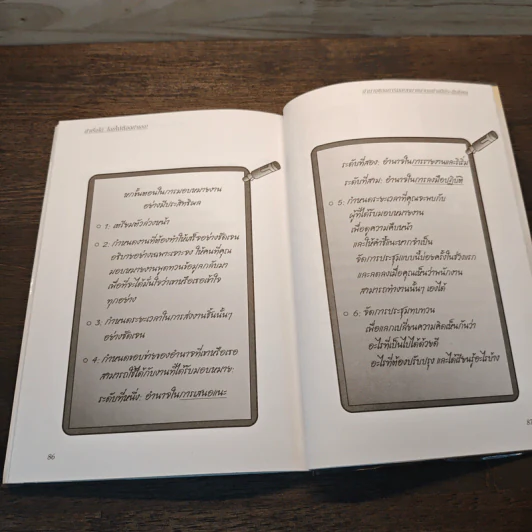 หกขั้นตอนในการมอบหมายงาน
อย่างมีประสิทธิผล
1: เตรียมตัวล่วงหน้า
2: กำหนดงานที่ต้องทำให้เสร็จอย่างชัดเจน
อธิบายอย่างเฉพาะเจาะจง ให้คนที่คุณ
มอบหมายงานพูดทวนข้อมูลกลับมา
เพื่อที่จะได้มั่นใจว่าเขาหรือเธอเข้าใจ
ทุกอย่าง
3: กำหนดระยะเวลาในการส่งงานชิ้นนั้นๆ
อย่างชัดเจน
4: กำหนดขอบข่ายของอำนาจที่เขาหรือเธอ
สามารถใช้ได้กับงานที่ได้รับมอบหมาย:
ระดับที่หนึ่ง: อำนาจในการเสนอแนะ
86
ระดับที่สอง: อำนาจในการรายงานและริเริ่ม
ระดับที่สาม: อำนาจในการลงมือปฏิบัติ
5: กำหนดระยะเวลาที่คุณจะพบกับ
ผู้ที่ได้รับมอบหมายงาน
เพื่อดูความคืบหน้า
และให้คำชี้แนะหากจำเป็น
จัดการประชุมแบบนี้บ่อยครั้งในช่วงแรก
และลดลงเมื่อคุณเห็นว่าพนักงาน
สามารถทำงานนั้นๆ เองได้
6: จัดการประชุมทบทวน
เพื่อแลกเปลี่ยนความคิดเห็นกันว่า
อะไรที่เป็นไปได้ด้วยดี
อะไรที่ต้องปรับปรุง และได้เรียนรู้อะไรบ้าง